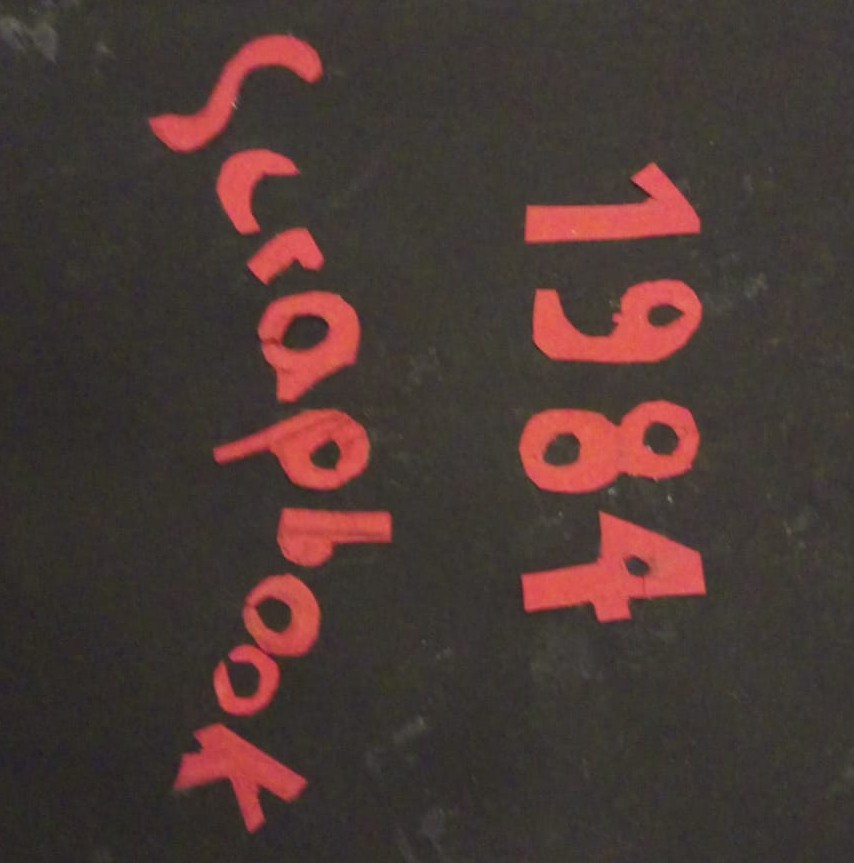 1984
Scrapbook